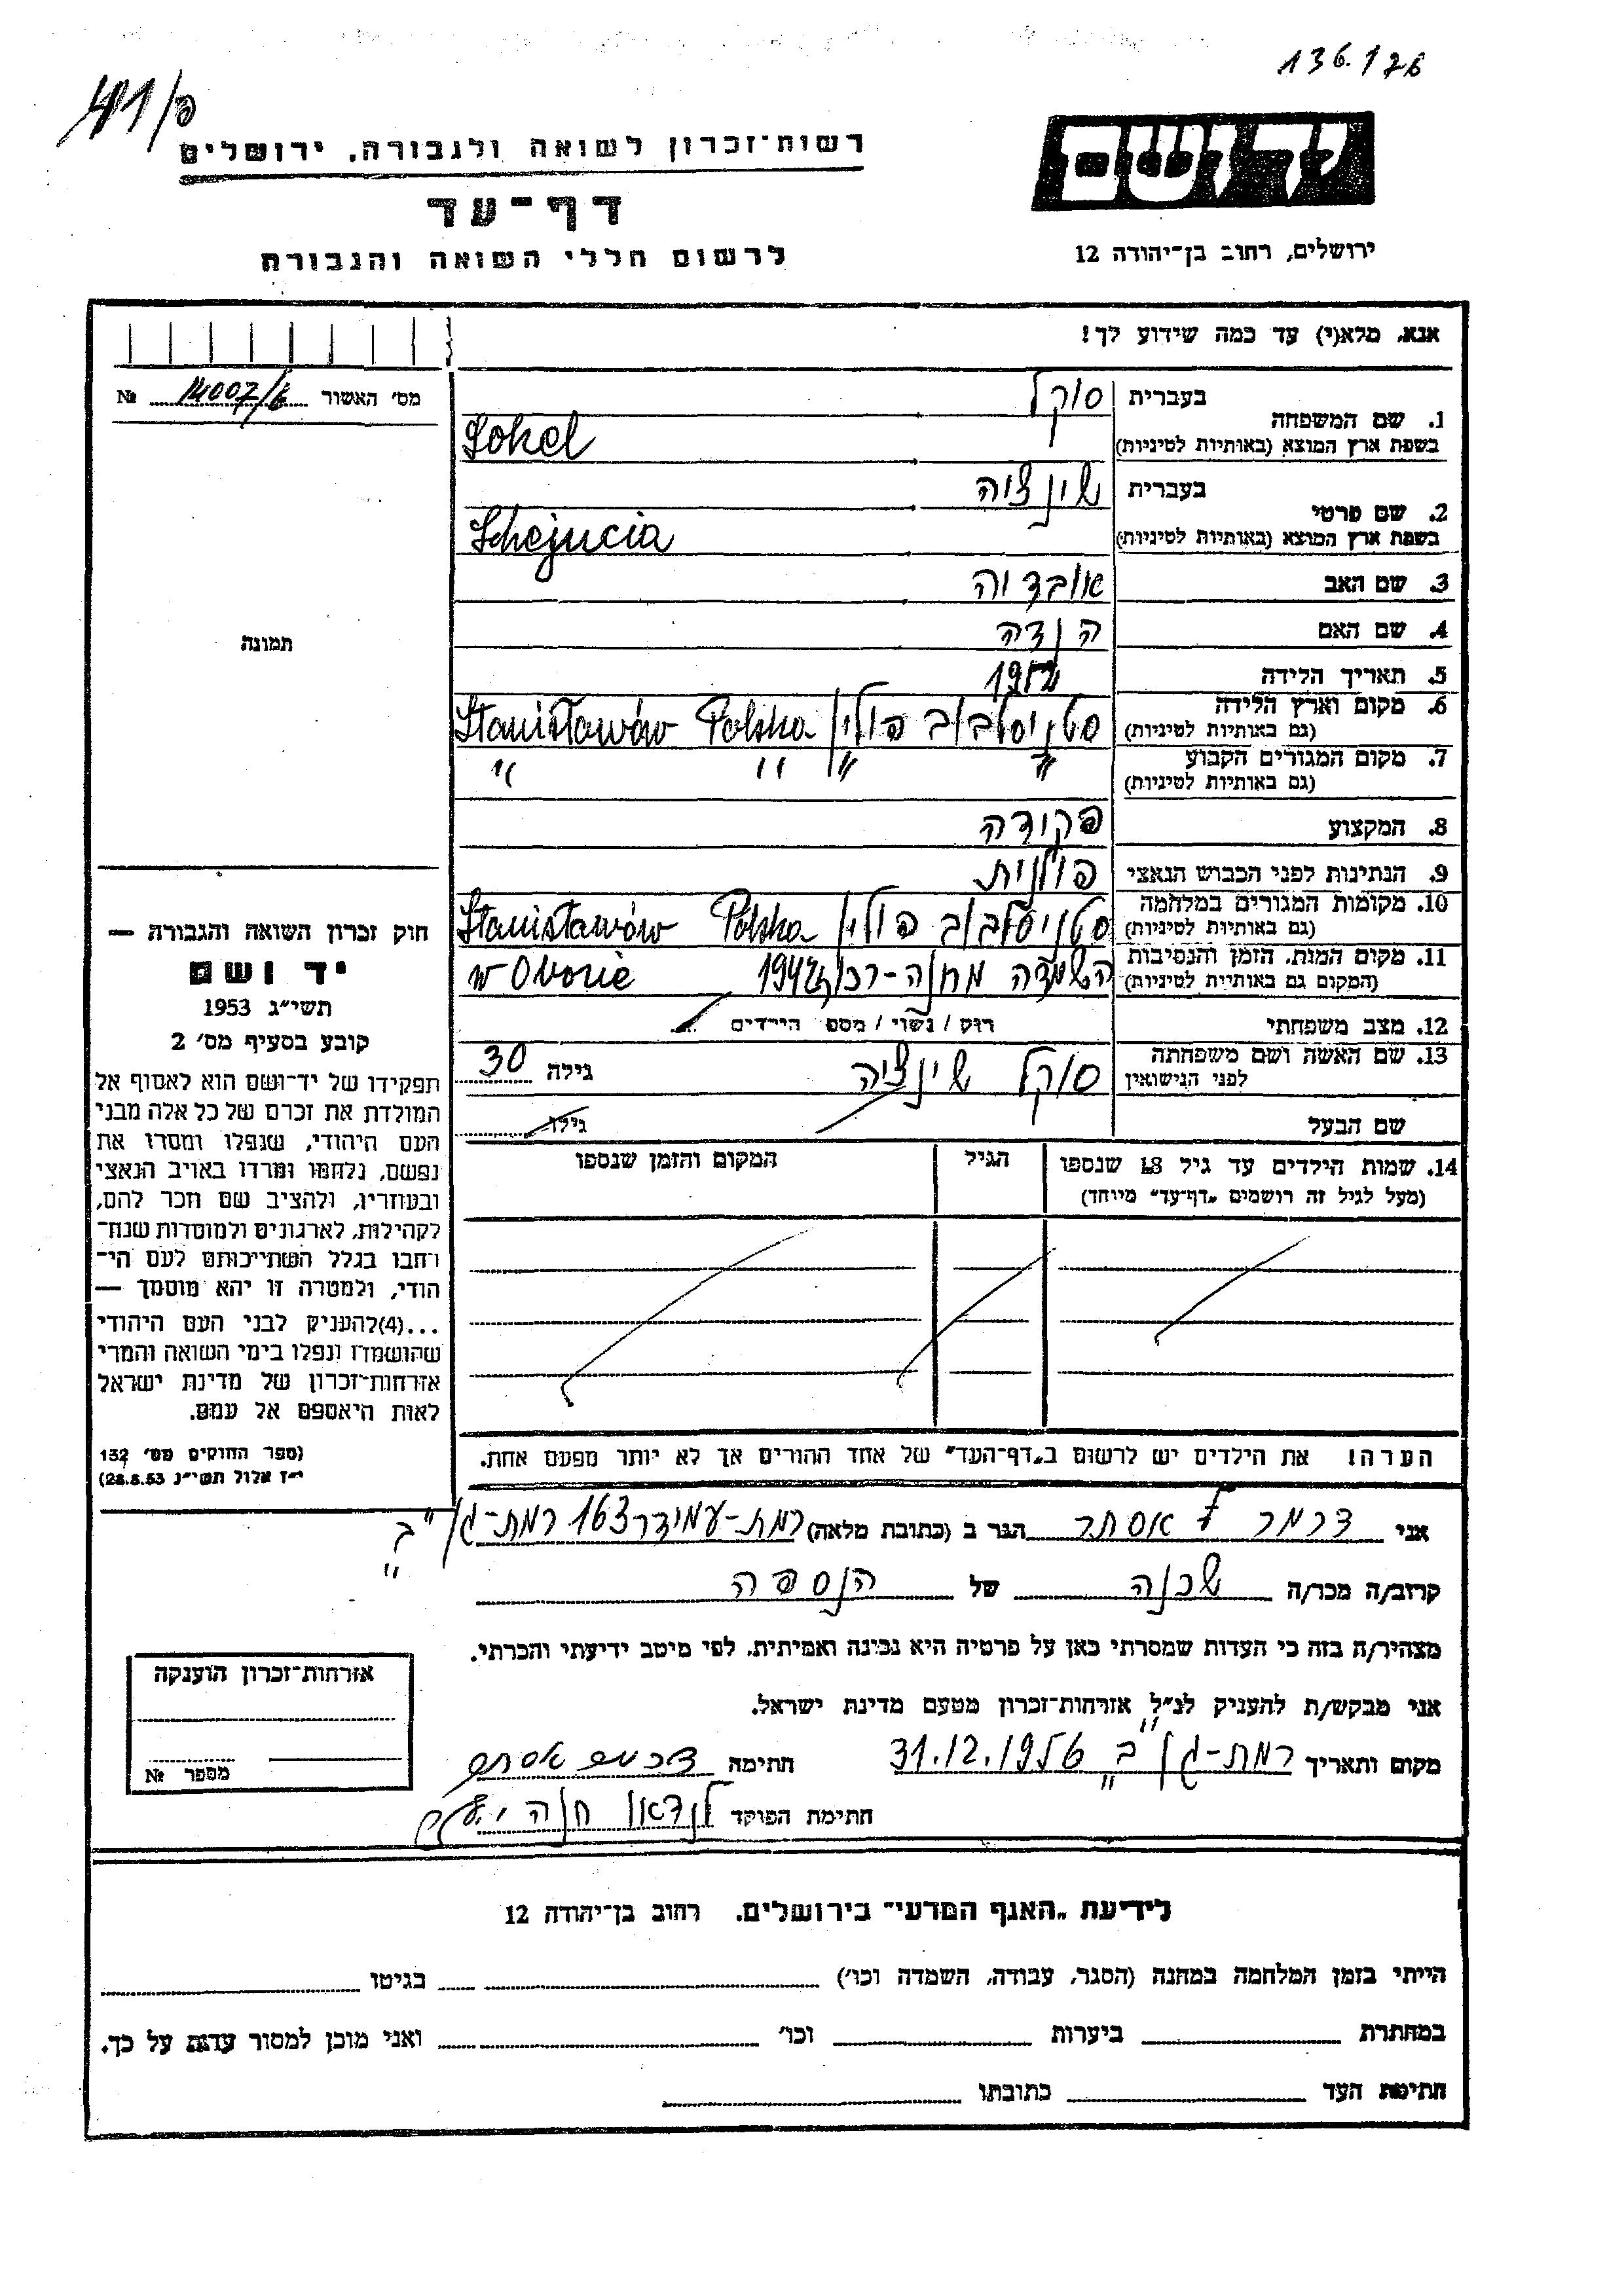 136.176
41/פ
יד ושם
רשות־זכרון לשואה ולגבורה, ירושלים
דף־עד
לרשום חללי השואה והגבורה
ירושלים, רחוב בן־יהודה 12
אנא, מלא(י) עד כמה שידוע לך!
מס׳ האשור 14007/6 №
1. שם המשפחה
בעברית סוקל
בשפת ארץ המוצא (באותיות לטיניות) Sokel
2. שם פרטי
בעברית שינציה
בשפת ארץ המוצא (באותיות לטיניות)
3. שם האב
4. שם האם
5. תאריך הלידה
6. מקום וארץ הלידה סטניסלבוב פולין Stanisławów Polska
(גם באותיות לטיניות)
7. מקום המגורים הקבוע " " " "
(גם באותיות לטיניות)
8. המקצוע פקידה
9. הנתינות לפני הכבוש הנאצי פולנית
10. מקומות המגורים במלחמה סטניסלבוב פולין Stanisławów Polska
(גם באותיות לטיניות)
11. מקום המות, הזמן והנסיבות השמדה מחנה- 1942 w Oborie
(המקום גם באותיות לטיניות)
12. מצב משפחתי רוק / נשוי / מספ׳ הילדים
13. שם האשה ושם משפחתה סוקל שינציה גילה 30
לפני הנישואין
שם הבעל גילו
14. שמות הילדים עד גיל 18 שנספו הגיל המקום והזמן שנספו
(מעל לגיל זה רושמים „דף־עד” מיוחד)
הערה! את הילדים יש לרשום ב„דף־העד” של אחד ההורים אך לא יותר מפעם אחת.
תמונה
חוק זכרון השואה והגבורה —
יד ושם
תשי״ג 1953
קובע בסעיף מס׳ 2
תפקידו של יד־ושם הוא לאסוף אל
המולדת את זכרם של כל אלה מבני
העם היהודי, שנפלו ומסרו את
נפשם, נלחמו ומרדו באויב הנאצי
ובעוזריו, ולהציב שם וזכר להם,
לקהילות, לארגונים ולמוסדות שנח־
רבו בגלל השתייכותם לעם הי־
הודי, ולמטרה זו יהא מוסמך —
...(4) להעניק לבני העם היהודי
שהושמדו ונפלו בימי השואה והמרי
אזרחות־זכרון של מדינת ישראל
לאות היאספם אל עמם.
(ספר החוקים מס׳ 132
י״ז אלול תשי״ג 28.8.53)
אני אסתר הגר ב (כתובת מלאה) רמת-עמידר 163 רמת-גן "ב"
קרוב/ה מכר/ה שכנה של הנספה
מצהיר/ה בזה כי העדות שמסרתי כאן על פרטיה היא נכונה ואמיתית, לפי מיטב ידיעתי והכרתי.
אני מבקש/ת להעניק לנ״ל אזרחות־זכרון מטעם מדינת ישראל.
מקום ותאריך רמת-גן "ב" 31.12.1956 חתימה
חתימת הפוקד לנדאו חנה
אזרחות־זכרון הוענקה
מספר №
לידיעת „האגף המדעי” בירושלים, רחוב בן־יהודה 12
הייתי בזמן המלחמה במחנה (הסגר, עבודה, השמדה וכו׳) בגיטו
במחתרת ביערות וכו׳ ואני מוכן למסור עדות על כך.
חתימת העד כתובתו